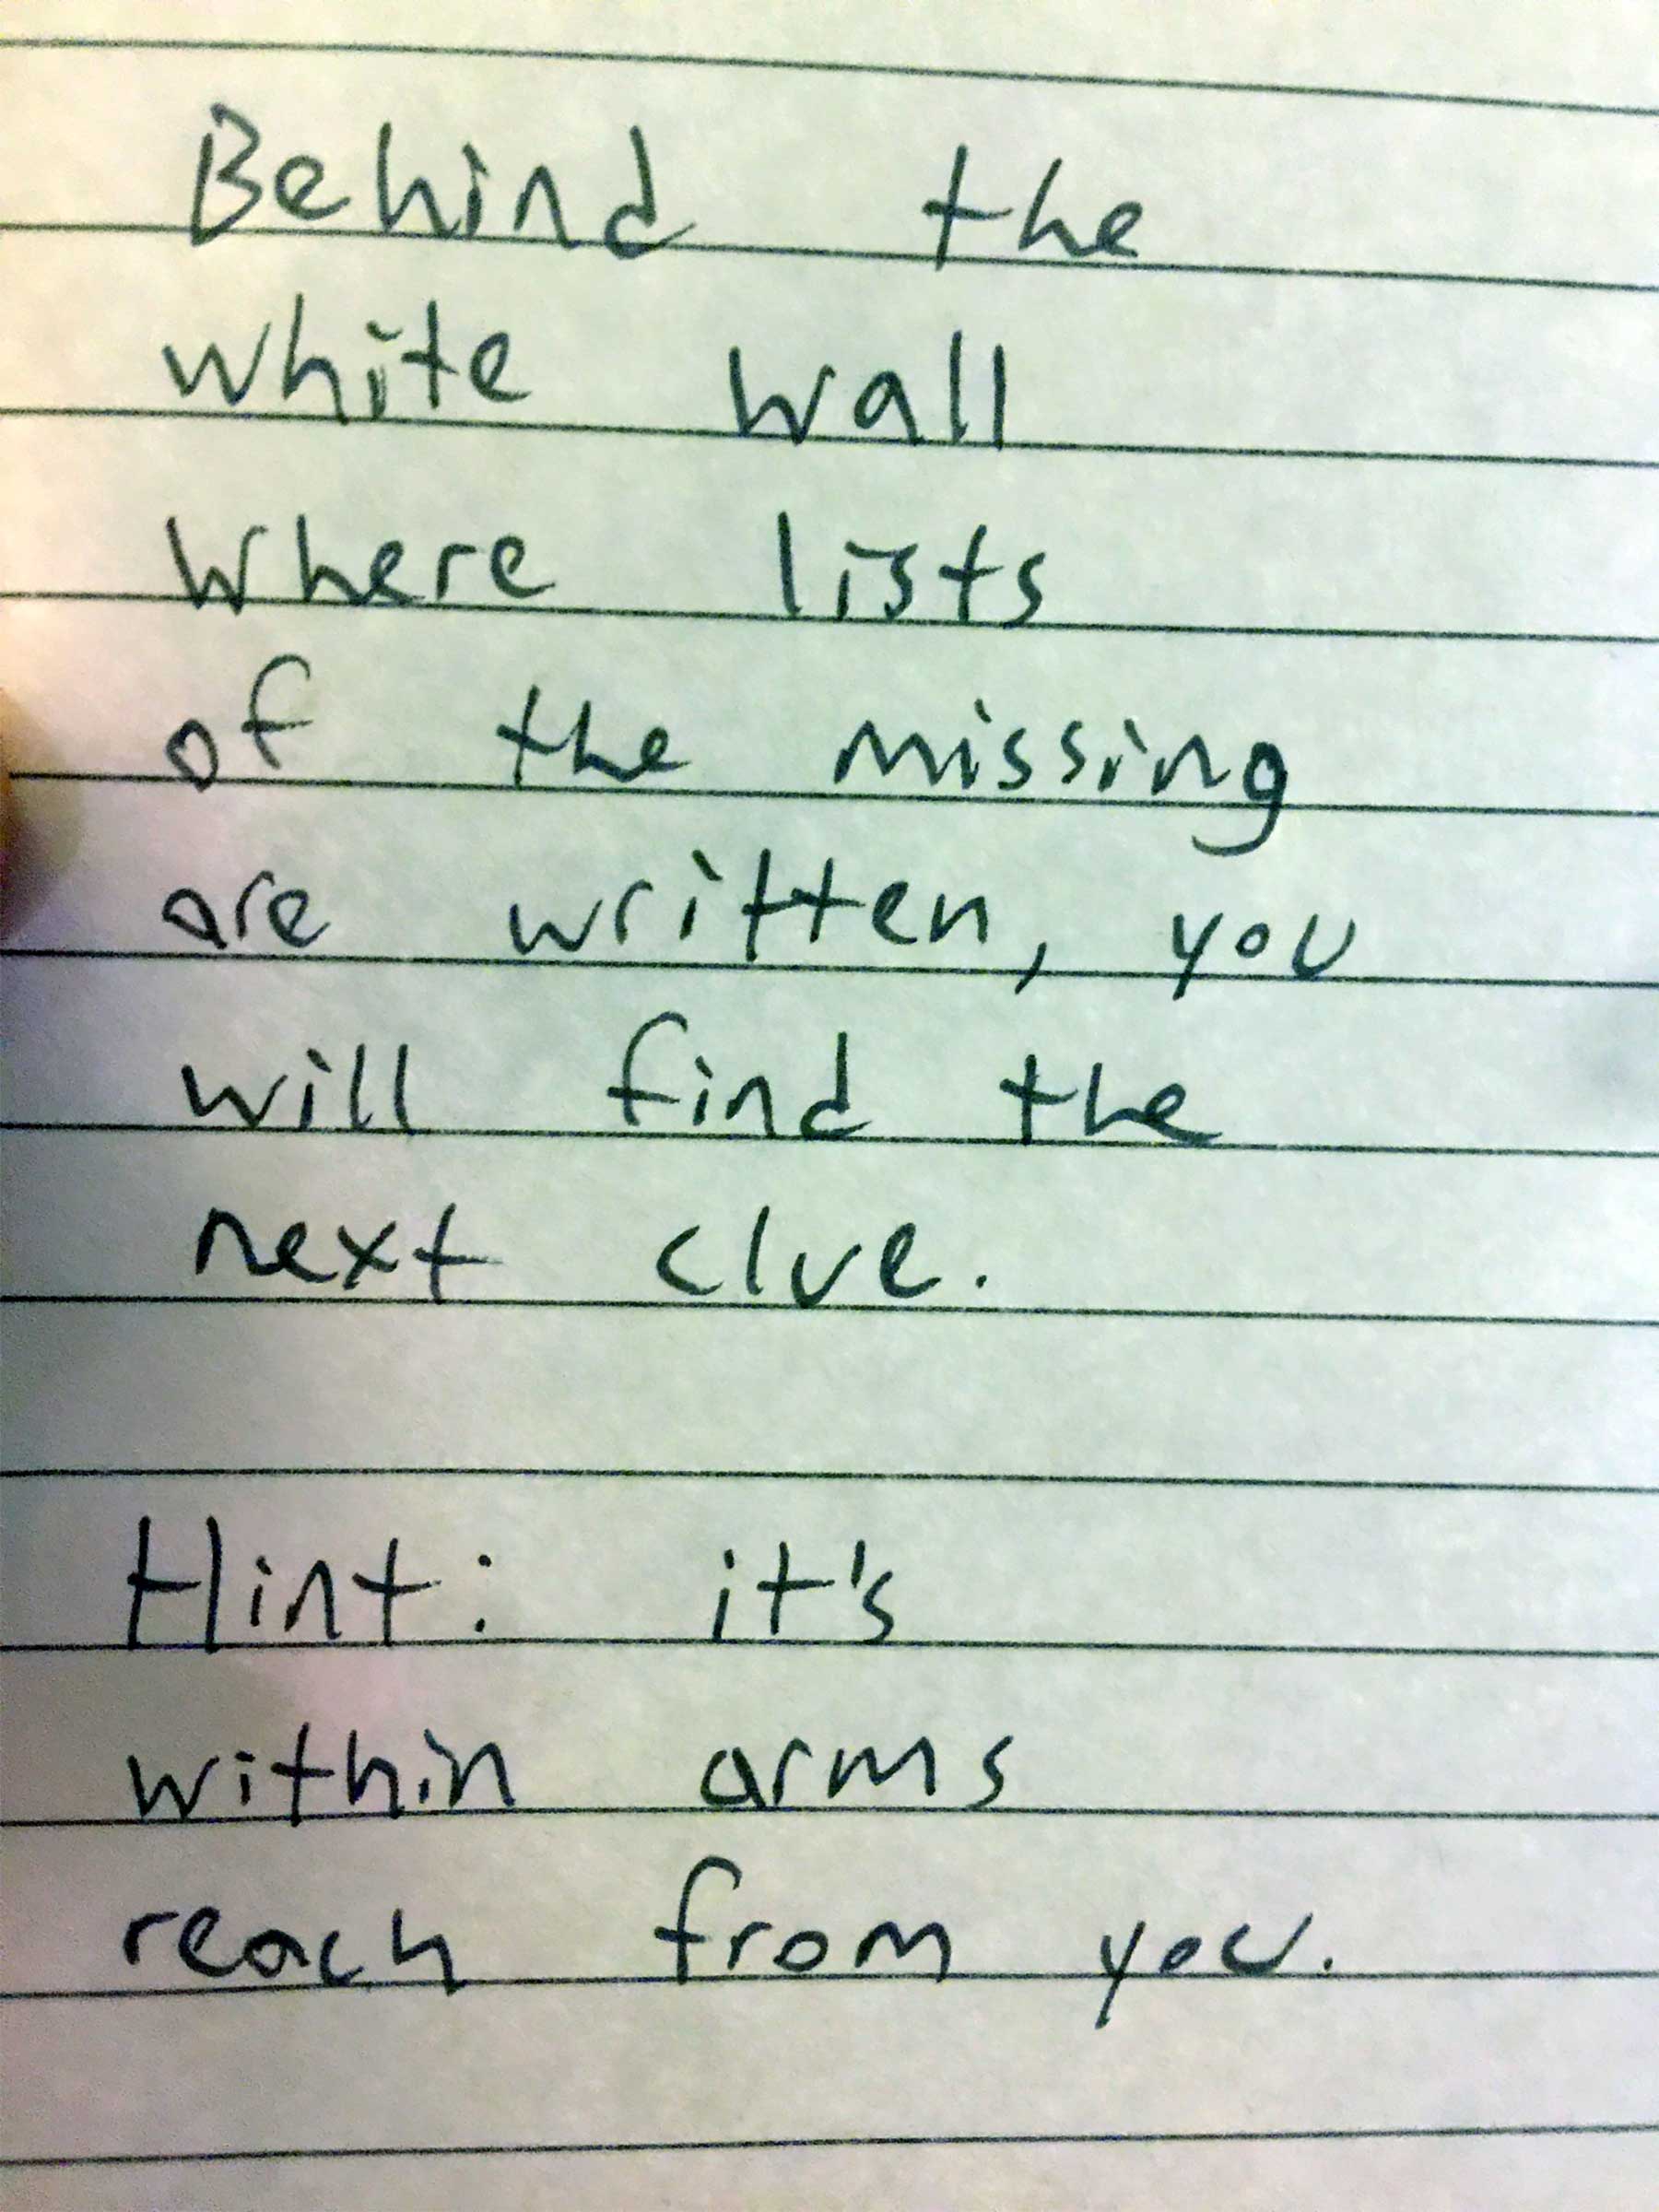 Behind the
white wall
where lists
of the missing
are written, you
will find the
next clue.
Hint: it's
within arms
reach from you.